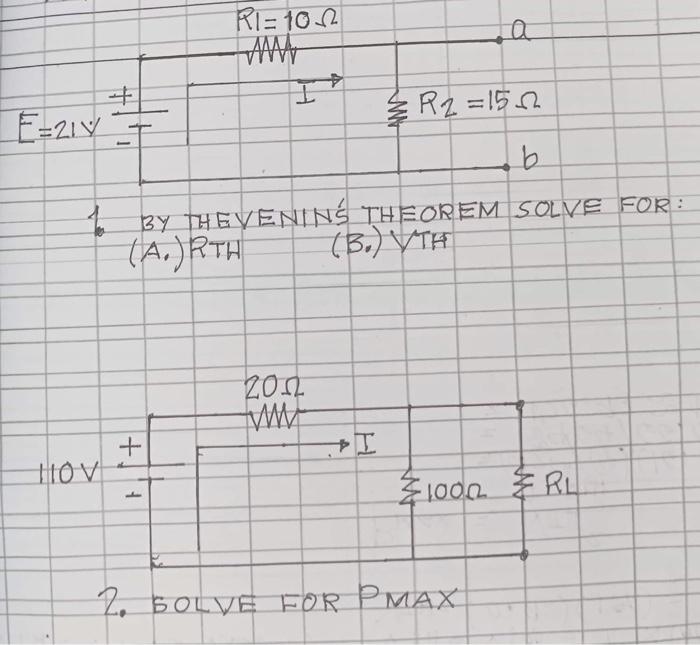 R1=10Ω
a
E=21V
+
-
I
R2=15Ω
b
1. BY THEVENIN'S THEOREM SOLVE FOR:
(A.) RTH (B.) VTH
20Ω
110V
+
-
I
100Ω
RL
2. SOLVE FOR PMAX